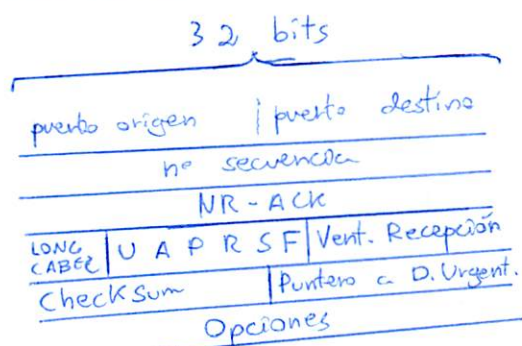 32 bits
puerto origen | puerto destino
nº secuencia
NR-ACK
LONG CABEZ | U A P R S F | Vent. Recepción
CheckSum | Puntero a D. Urgent.
Opciones